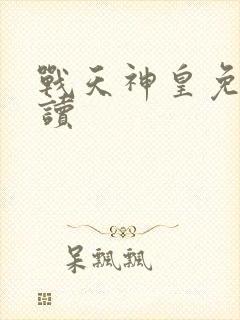 戰天神皇免
讀
呆飄飄